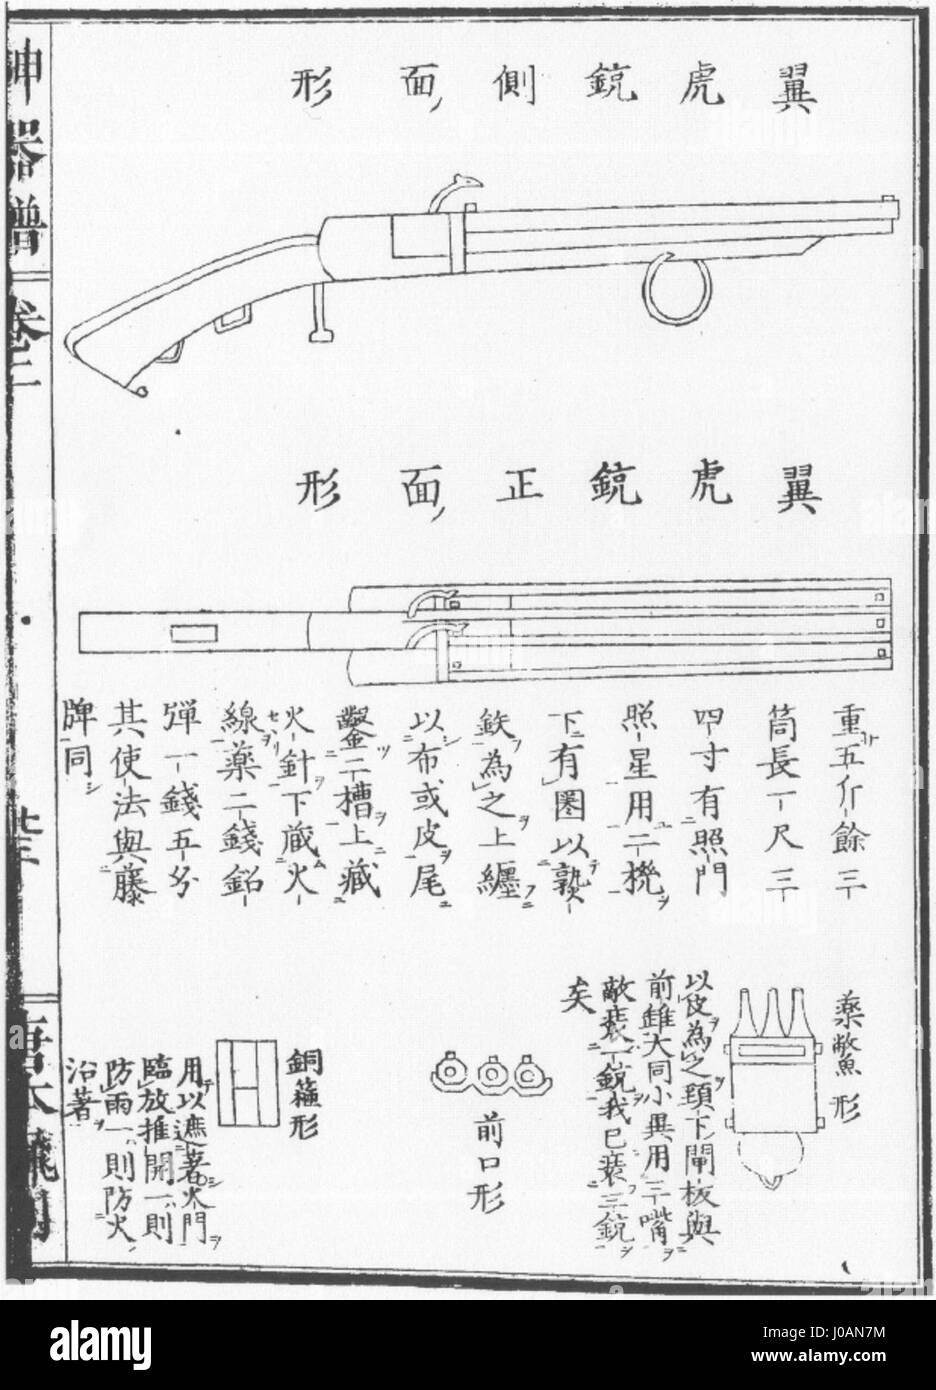 翼虎銃側面形
翼虎銃正面形
重五斤餘三
筒長一尺三
四寸有照門
照星用二機
下有圏以熟
鉄為之上纒
以布或皮尾
鑿二槽上藏
火針下藏火
線藥二錢鉛
彈一錢五分
其使法與藤
牌同
藥鱉形
以皮為之頸下閘板與
前雖大同小異用三嘴
敵裝一銃我已裝三銃
矣
前口形
銅箍形
用以遮著火門
臨放推開一則
防雨一則防火
沿著
神器譜
卷二
alamy
Image ID: J0AN7M
www.alamy.com